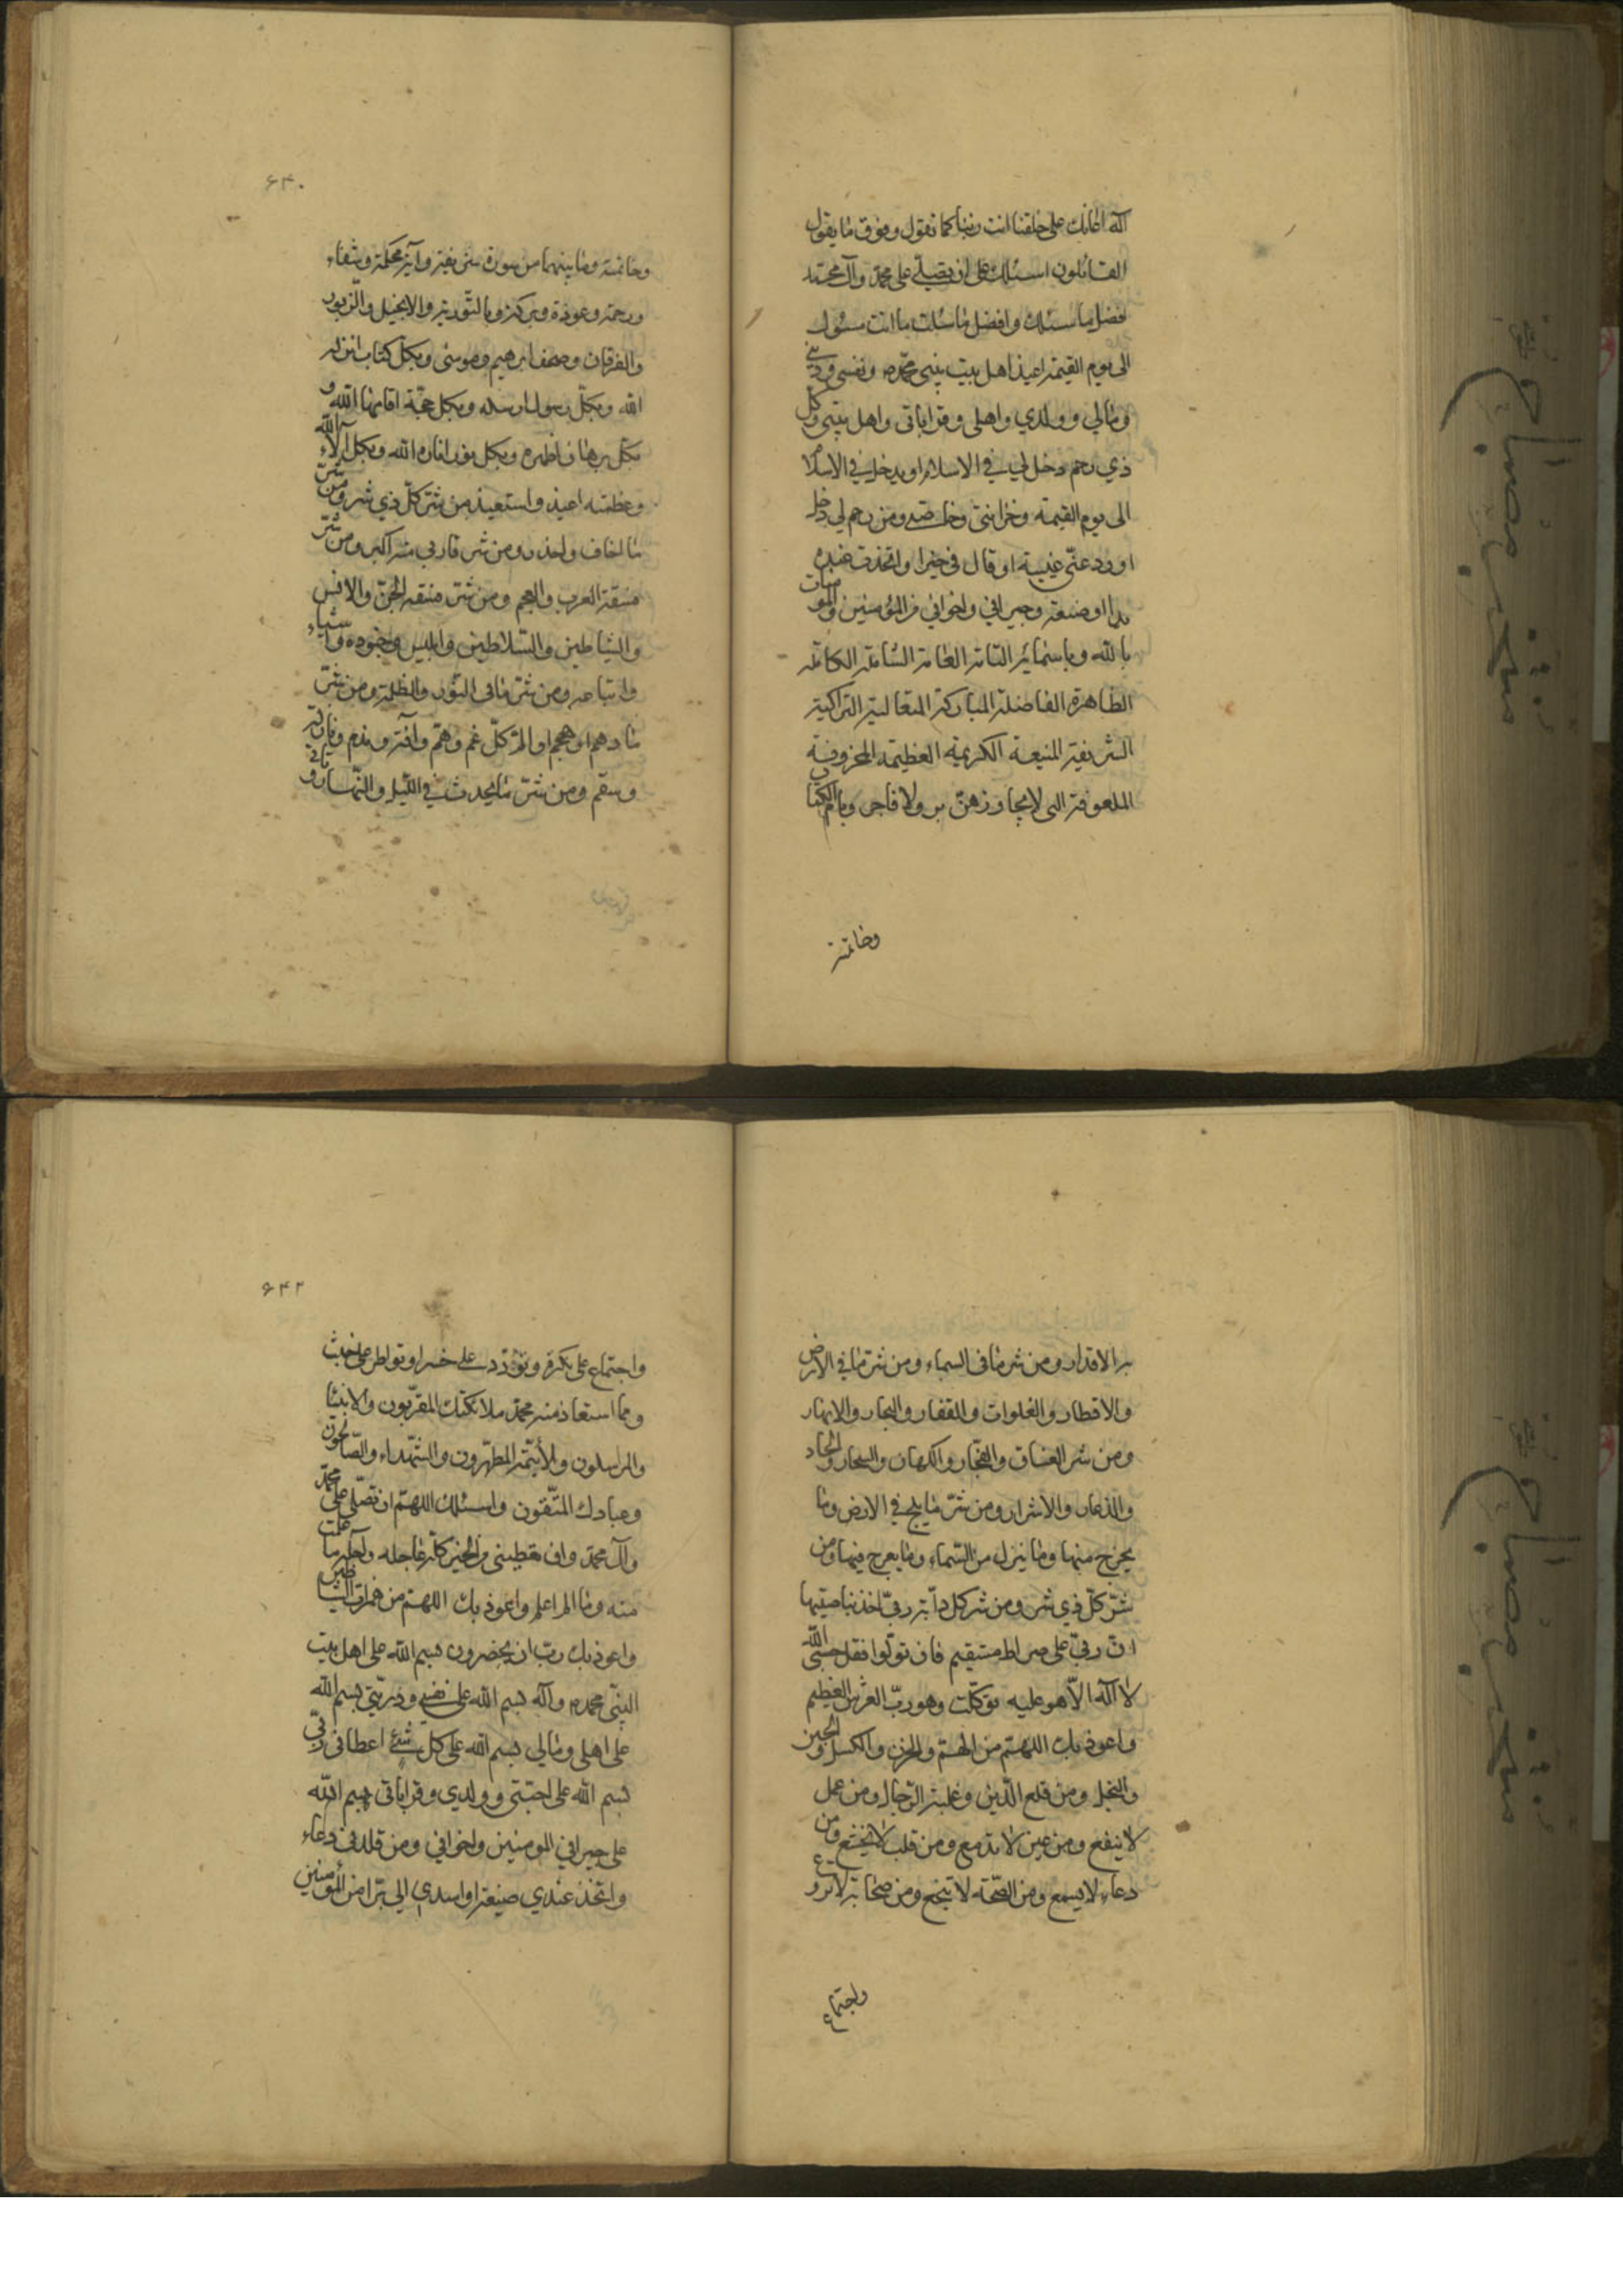 اله اعانك على خلقنا انت ربنا كما تقول وفوق ما يقول
القائلون اسئلك ان تصلى على محمد وآل محمد
افضل ما سئلك وافضل ما سئلت ما انت مسئول
الى يوم القيمة اعيذ اهل بيت نبيى محمد ونفسى ودينى
ومالي وولدي واهلى وقراباتى واهل بيتى وكل
ذي رحم دخل لي في الاسلام او يدخل في الاسلام
الى يوم القيمة وحزانتى وخاصتى ومن رحم لي دخل
او رد عنى غيبة او قال في خيرا او اتخذت عنده
يدا او صنيعة وجيراني واخواني من المؤمنين والمؤمنات
بالله وباسمائه التامة العامة الشاملة الكاملة
الطاهرة الفاضلة المباركة المتعالية الزاكية
الشريفة المنيعة الكريمة العظيمة المخزونة
التى لا يجاوزهن بر ولا فاجر وبام الكتاب
وخاتمته
۶۴۰
وخاتمته وما بينهما من سورة شريفة وآية محكمة وشفاء
ورحمة وعوذة وبركة وبالتورية والانجيل والزبور
والفرقان وصحف ابرهيم وموسى وبكل كتاب انزله
الله وبكل رسول ارسله وبكل حجة اقامها الله و
بكل برهان اظهره وبكل نور اناره الله وبكل آلاء الله
وعظمته اعيذ واستعيذ من شر كل ذي شر ومن شر
ما اخاف واحذر ومن شر ما ربي منه اكبر ومن شر
فسقة العرب والعجم ومن شر فسقة الجن والانس
والشياطين والسلاطين وابليس وجنوده واشياعه
واتباعه ومن شر ما فى النور والظلمة ومن شر
ما دهم او هجم او الم كل غم وهم وآفة وندم ونازلة
وسقم ومن شر ما يحدث في الليل والنهار وتأتى
به الاقدار ومن شر ما فى السماء ومن شر ما في الارض
والاقطار والفلوات والقفار والبحار والانهار
ومن شر الفساق والفجار والكهان والسحار والحساد
والذعار والاشرار ومن شر ما يلج في الارض وما
يخرج منها وما ينزل من السماء وما يعرج فيها ومن
شر كل ذي شر ومن شر كل دآبة ربى آخذ بناصيتها
ان ربى على صراط مستقيم فان تولوا فقل حسبى الله
لا اله الا هو عليه توكلت وهو رب العرش العظيم
واعوذ بك اللهم من الهم والحزن والكسل والجبن
والبخل ومن ضلع الدين وغلبة الرجال ومن عمل
لا ينفع ومن عين لا تدمع ومن قلب لا يخشع ومن
دعاء لا يسمع ومن نصيحة لا تنجع ومن صحابة لا تردع
واجتماع
۶۴۲
واجتماع على نكرة وتودد على خسر او تواطى على خبث
ومما استعاذ منه محمد ملائكتك المقربون والانبياء
والمرسلون والأئمة المطهرون والشهداء والصالحون
وعبادك المتقون واسئلك اللهم ان تصلى على محمد
وآل محمد وان تعطينى من الخير كله عاجله وآجله ما علمت
منه وما لم اعلم واعوذ بك اللهم من همزات الشياطين
واعوذ بك رب ان يحضرون بسم الله على اهل بيت
النبى محمد وآله بسم الله على نفسى وذريتى بسم الله
على اهلى ومالي بسم الله على كل شئ اعطانى ربى
بسم الله على احبتى وولدي وقراباتى بسم الله
على جيراني المومنين واخواني ومن قلدنى دعاء
واتخذ عندي صنيعة او اسدى الي برا من المؤمنين